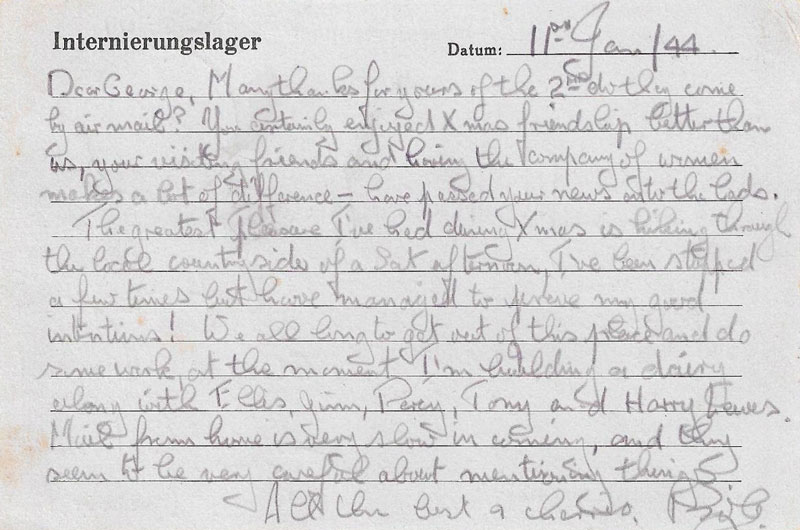 Internierungslager
Datum: 11th Jan/44.
Dear George, Many thanks for yours of the 2nd do they come
by air mail? You certainly enjoyed Xmas friendship better than
us, your visiting friends and having the company of women
makes a lot of difference – have passed your news onto the lads.
The greatest pleasure I've had during Xmas is hiking through
the local countryside of a Sat afternoon, I've been stopped
a few times but have managed to prove my good
intentions! We all long to get out of this place and do
some work, at the moment I'm building a dairy
along with Ellis, Jim, Percy, Tony and Harry
Mail from home is very slow in coming, and they
seem to be very careful about mentioning things
All the best & cheerio.